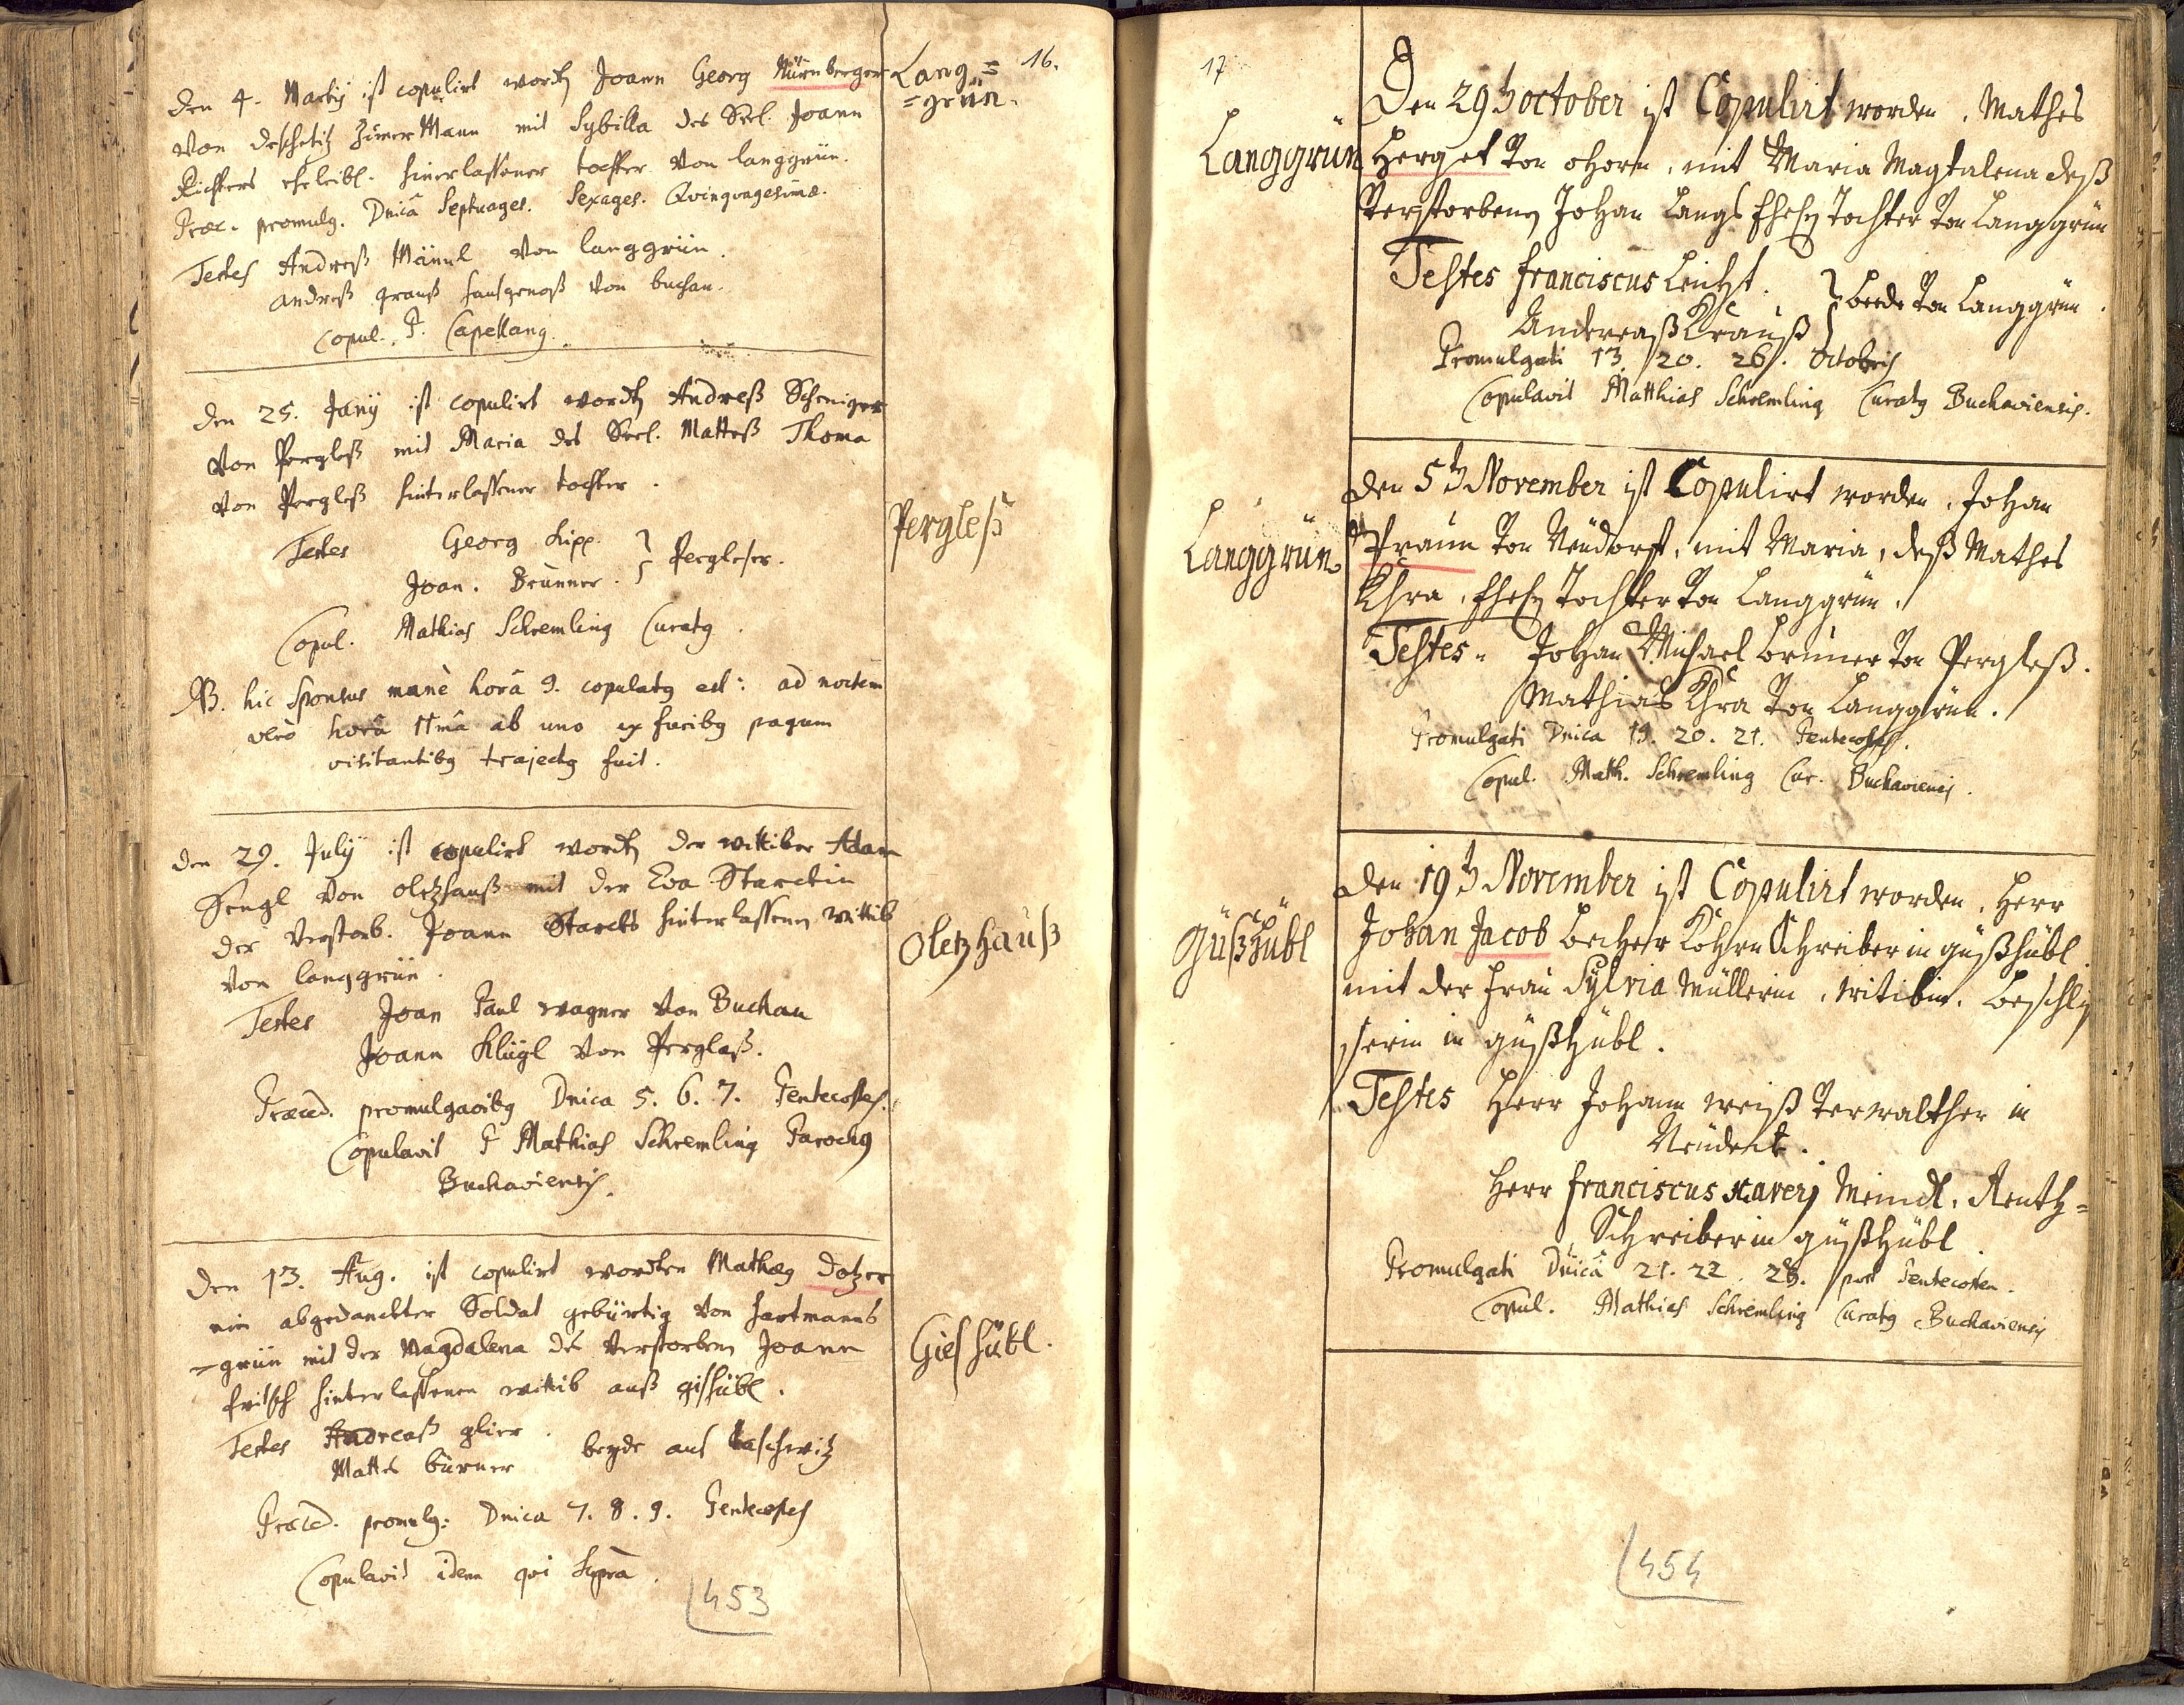 16.
Lang=
=grün.
den 4. Martij ist copulirt word Joann Georg Nürnberger
von deschetitz Zimer Mann mit Sybilla des Seel. Joann
Richters eheleibl. hinerlassener tochter von langgrün.
Præc. promulg. Dnicâ Septuages. Sexages. Qvinqvagesimæ.
Testes Andreß Männl von langgrün.
andreß grauß hausgenoß von buchau.
Copul. P. Capellang.
Pergleß
den 25. Junij ist copulirt word Andreß Scheniger
von Pergleß mit Maria des Seel. Matteß Thoma
von Pergleß hinterlassener tochter.
Testes Georg Lipp.
Joan. Brunner. } Pergleser.
Copul. Mathias Schremling Curatg.
NB. hic sponsus manè horâ 9. copulatg est: ad noctem
verò horâ 11mâ ab uno ex furibg pagum
visitantibg trajectg fuit.
Oletzhauß
den 29. Julij ist copulirt word der wittiber Adam
Sengl von oletzhauß mit der Eva Starckin
der verstorb. Joann Starcks hinterlassenen wittib
von langgrün.
Testes Joan Paul wagner von Buchau
Joann Klügl von Perglaß.
Præced. promulgaoibg Dnica 5. 6. 7. Pentecostes.
Copulavit P Mathias Schremling Parochg
Buchaviensis.
Gieshübl.
den 13. Aug. ist copulirt worden Mathæg Dotzer
ein abgedanckter Soldat gebürtig von hartmanns
=grün mit der Magdalena des verstorbenen Joann
fritsch hinterlassenen wittib auß gishübl.
Testes Andreaß glier.
Mattes burner beyde aus taschwitz
Præced. promulg: Dnica 7. 8. 9. Pentecostes
Copulavit idem qvi supra.
453
17
Langgrün
Den 29t october ist Copulirt worden, Mathes
Herget von ohorn, mit Maria Magtalena deß
verstorbenen Johan Langs Ehel Tochter von Langgrün
Testes franciscus Leicht.
Andereaß Krauß } beede von Langgrün.
Promulgati 13. 20. 26. Octobris
Copulavit Matthias Schremling Curatg Buchaviensis.
Langgrün
den 5t November ist Copulirt worden, Johan
Praun von Neudorff, mit Maria, deß Mathes
Khra, Ehel Tochter von Langgrün.
Testes. Johan Michael Bruner von Pergleß.
Mathias Khra von Langgrün.
Promulgati Dnica 19. 20. 21. Pentecostes.
Copul. Math. Schremling Cur. Buchaviensis.
Güßhübl
den 19t November ist Copulirt worden, Herr
Johan Jacob Becher Kohrn Schreiber in güßhübl
mit der Frau Sylvia Müllerin, witibin, Beschly
sserin in güßhübl.
Testes Herr Johann weiß Verwalther in
Neudeck.
Herr franciscus xaverj Meindl, Renth=
Schreiber in güßhübl.
Promulgati Dnicâ 21. 22. 23. post Pentecosten.
Copul. Mathias Schremling Curatg Buchaviensis
454